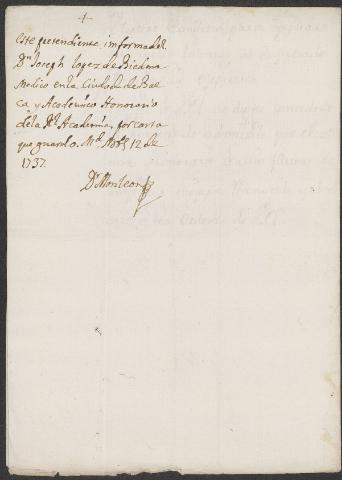 +
Este pretendiente, informa del
Dn Joseph Lopez de Biedma
Medico en la Ciudad de Bae
ca y Academico Honorario
de la Rl Academia, por carta
que guardo. Md 12 de
1737.
Dr Monteon